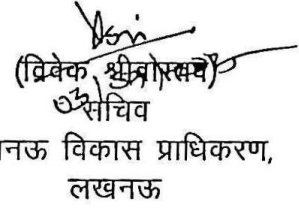 (विवेक श्रीवास्तव)
सचिव
नऊ विकास प्राधिकरण,
लखनऊ